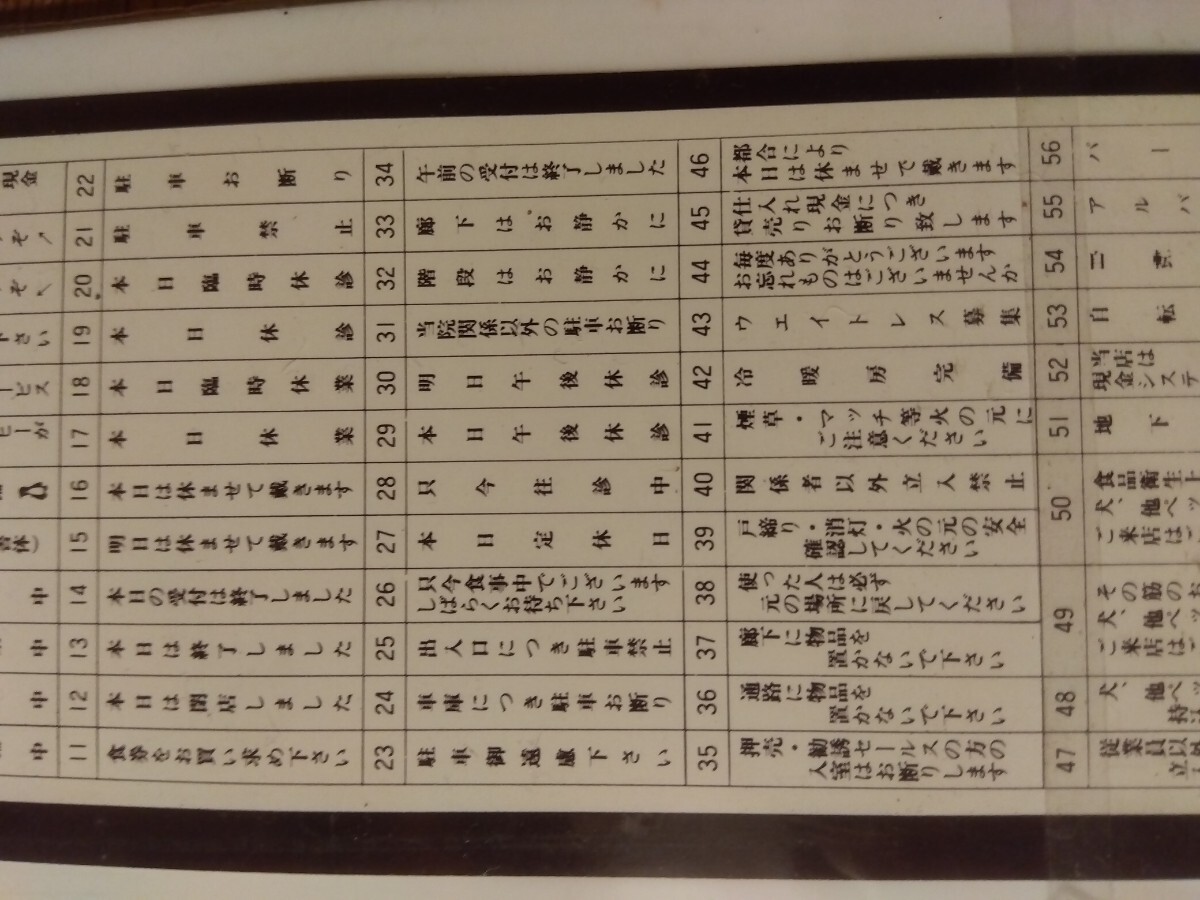 現金
中
中
中
11 食券をお買い求め下さい
12 本日は閉店しました
13 本日は終了しました
14 本日の受付は終了しました
15 明日は休ませて戴きます
16 本日は休ませて戴きます
17 本日休業
18 本日臨時休業
19 本日休診
20 本日臨時休診
21 駐車禁止
22 駐車お断り
23 駐車御遠慮下さい
24 車庫につき駐車お断り
25 出入口につき駐車禁止
26 只今食事中でございます
しばらくお待ち下さい
27 本日定休日
28 只今往診中
29 本日午後休診
30 明日午後休診
31 当院関係以外の駐車お断り
32 階段はお静かに
33 廊下はお静かに
34 午前の受付は終了しました
35 押売・勧誘セールスの方の
入室はお断りします
36 通路に物品を
置かないで下さい
37 廊下に物品を
置かないで下さい
38 使った人は必ず
元の場所に戻してください
39 戸締り・消灯・火の元の安全
確認してください
40 関係者以外立入禁止
41 煙草・マッチ等火の元に
ご注意ください
42 冷暖房完備
43 ウェイトレス募集
44 毎度ありがとうございます
お忘れものはございませんか
45 仕入れ現金につき
貸売りお断り致します
46 都合により
本日は休ませて戴きます
47 従業員以外
立
48 犬、他ペッ
持
49 その筋のお
犬、他ペッ
ご来店はご
50 食品衛生上
犬、他ペッ
ご来店はご
51 地下
52 当店は
現金システ
53 自転
54
55 アルバ
56 パー